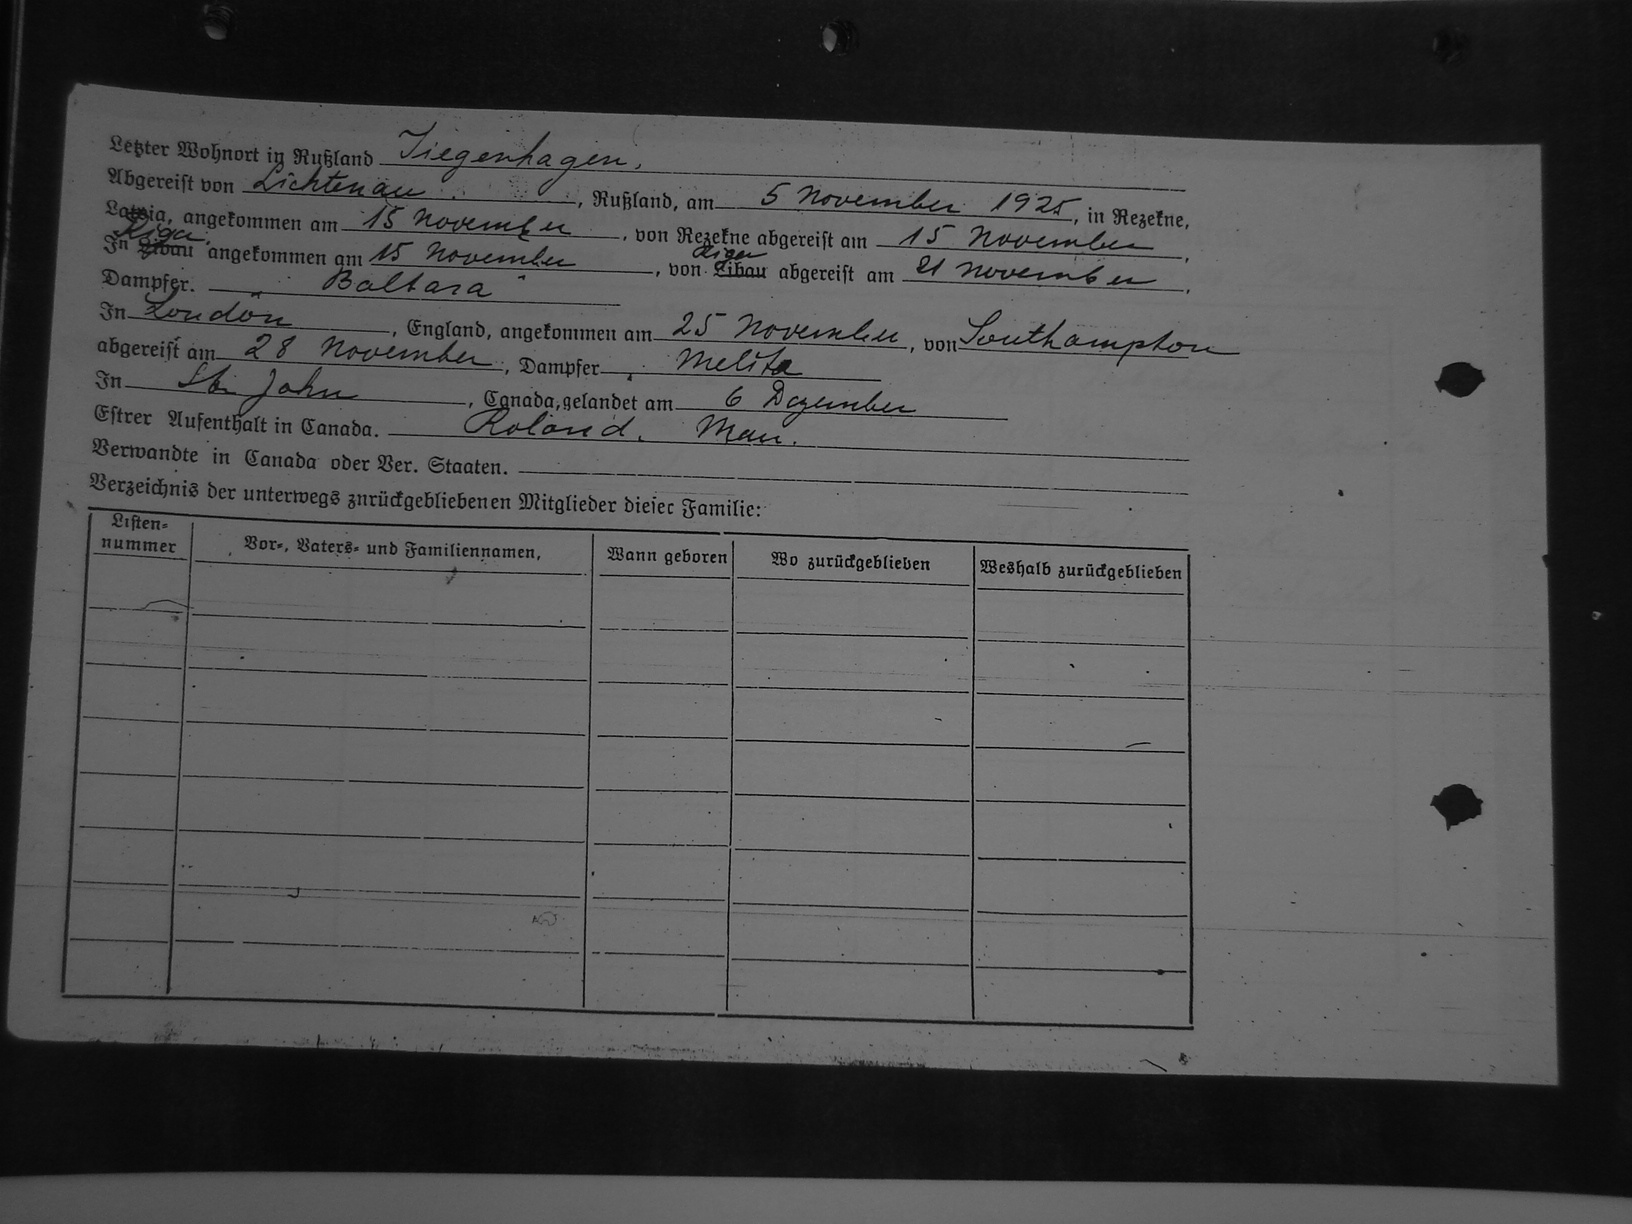 Letzter Wohnort in Rußland Tiegenhagen.
Abgereist von Lichtenau, Rußland, am 5 November 1925, in Rezekne,
Latvia, angekommen am 15 November, von Rezekne abgereist am 15 November,
Riga Riga
In Libau angekommen am 15 November, von Libau abgereist am 21 November,
Dampfer. „ Baltara "
In London, England, angekommen am 25 November, von Southampton
abgereist am 28 November, Dampfer „ Melita
In St. John, Canada, gelandet am 6 Dezember
Estrer Aufenthalt in Canada. Roland. Man.
Verwandte in Canada oder Ver. Staaten.
Verzeichnis der unterwegs znrückgebliebenen Mitglieder dieser Familie:
Listen-
nummer Vor-, Vaters- und Familiennamen, Wann geboren Wo zurückgeblieben Weshalb zurückgeblieben